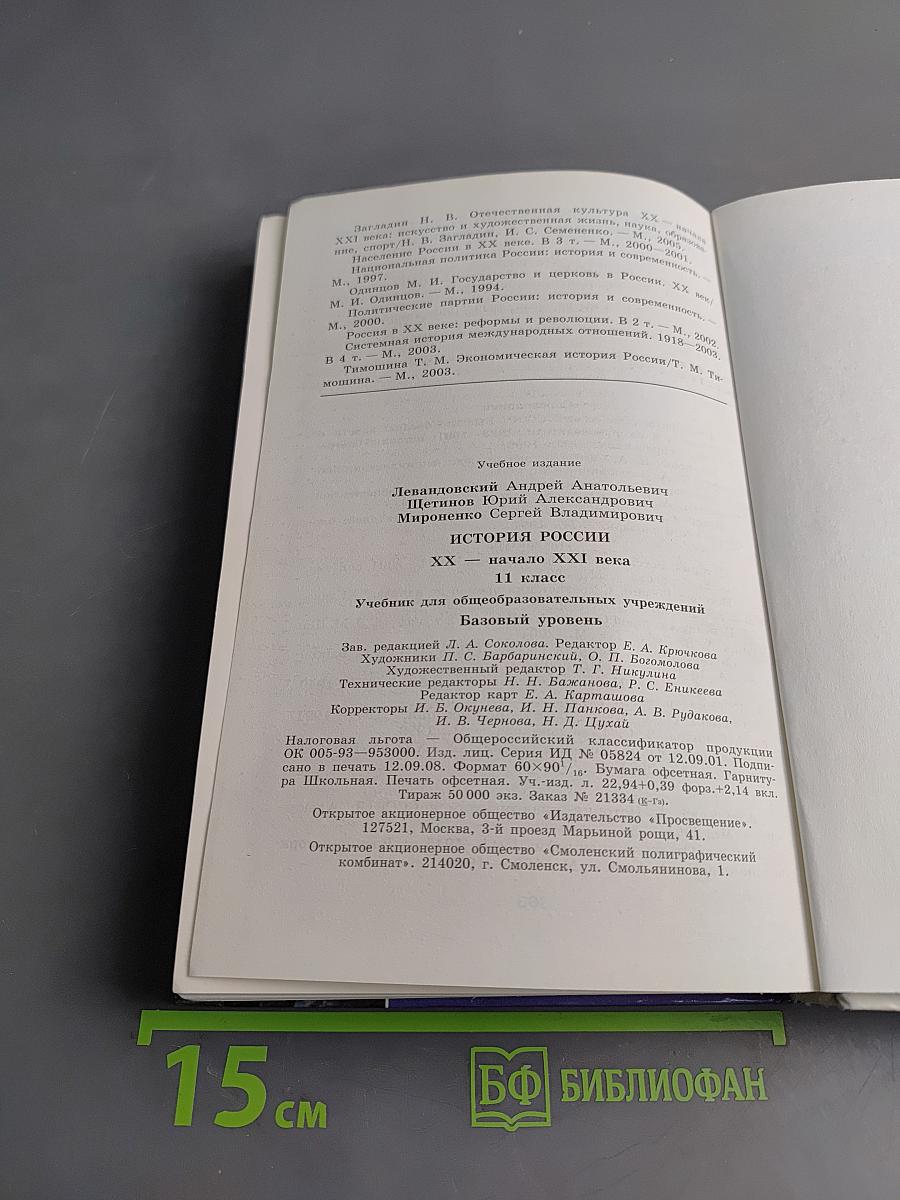 Загладин Н. В. Отечественная культура XX — начала
XXI века: искусство и художественная жизнь, наука, образова-
ние, спорт/Н. В. Загладин, И. С. Семененко. — М., 2005.
Население России в XX веке. В 3 т. — М., 2000—2001.
Национальная политика России: история и современность. —
М., 1997.
Одинцов М. И. Государство и церковь в России. XX век/
М. И. Одинцов. — М., 1994.
Политические партии России: история и современность. —
М., 2000.
Россия в XX веке: реформы и революции. В 2 т. — М., 2002.
Системная история международных отношений. 1918—2003.
В 4 т. — М., 2003.
Тимошина Т. М. Экономическая история России/Т. М. Ти-
мошина. — М., 2003.
Учебное издание
Левандовский Андрей Анатольевич
Щетинов Юрий Александрович
Мироненко Сергей Владимирович
ИСТОРИЯ РОССИИ
XX — начало XXI века
11 класс
Учебник для общеобразовательных учреждений
Базовый уровень
Зав. редакцией Л. А. Соколова. Редактор Е. А. Крючкова
Художники П. С. Барбаринский, О. П. Богомолова
Художественный редактор Т. Г. Никулина
Технические редакторы Н. Н. Бажанова, Р. С. Еникеева
Редактор карт Е. А. Карташова
Корректоры И. Б. Окунева, И. Н. Панкова, А. В. Рудакова,
И. В. Чернова, Н. Д. Цухай
Налоговая льгота — Общероссийский классификатор продукции
ОК 005-93—953000. Изд. лиц. Серия ИД № 05824 от 12.09.01. Подпи-
сано в печать 12.09.08. Формат 60×90¹/₁₆. Бумага офсетная. Гарниту-
ра Школьная. Печать офсетная. Уч.-изд. л. 22,94+0,39 форз.+2,14 вкл.
Тираж 50 000 экз. Заказ № 21334 (К-Гз).
Открытое акционерное общество «Издательство «Просвещение».
127521, Москва, 3-й проезд Марьиной рощи, 41.
Открытое акционерное общество «Смоленский полиграфический
комбинат». 214020, г. Смоленск, ул. Смольянинова, 1.
15 см
БФ БИБЛИОФАН